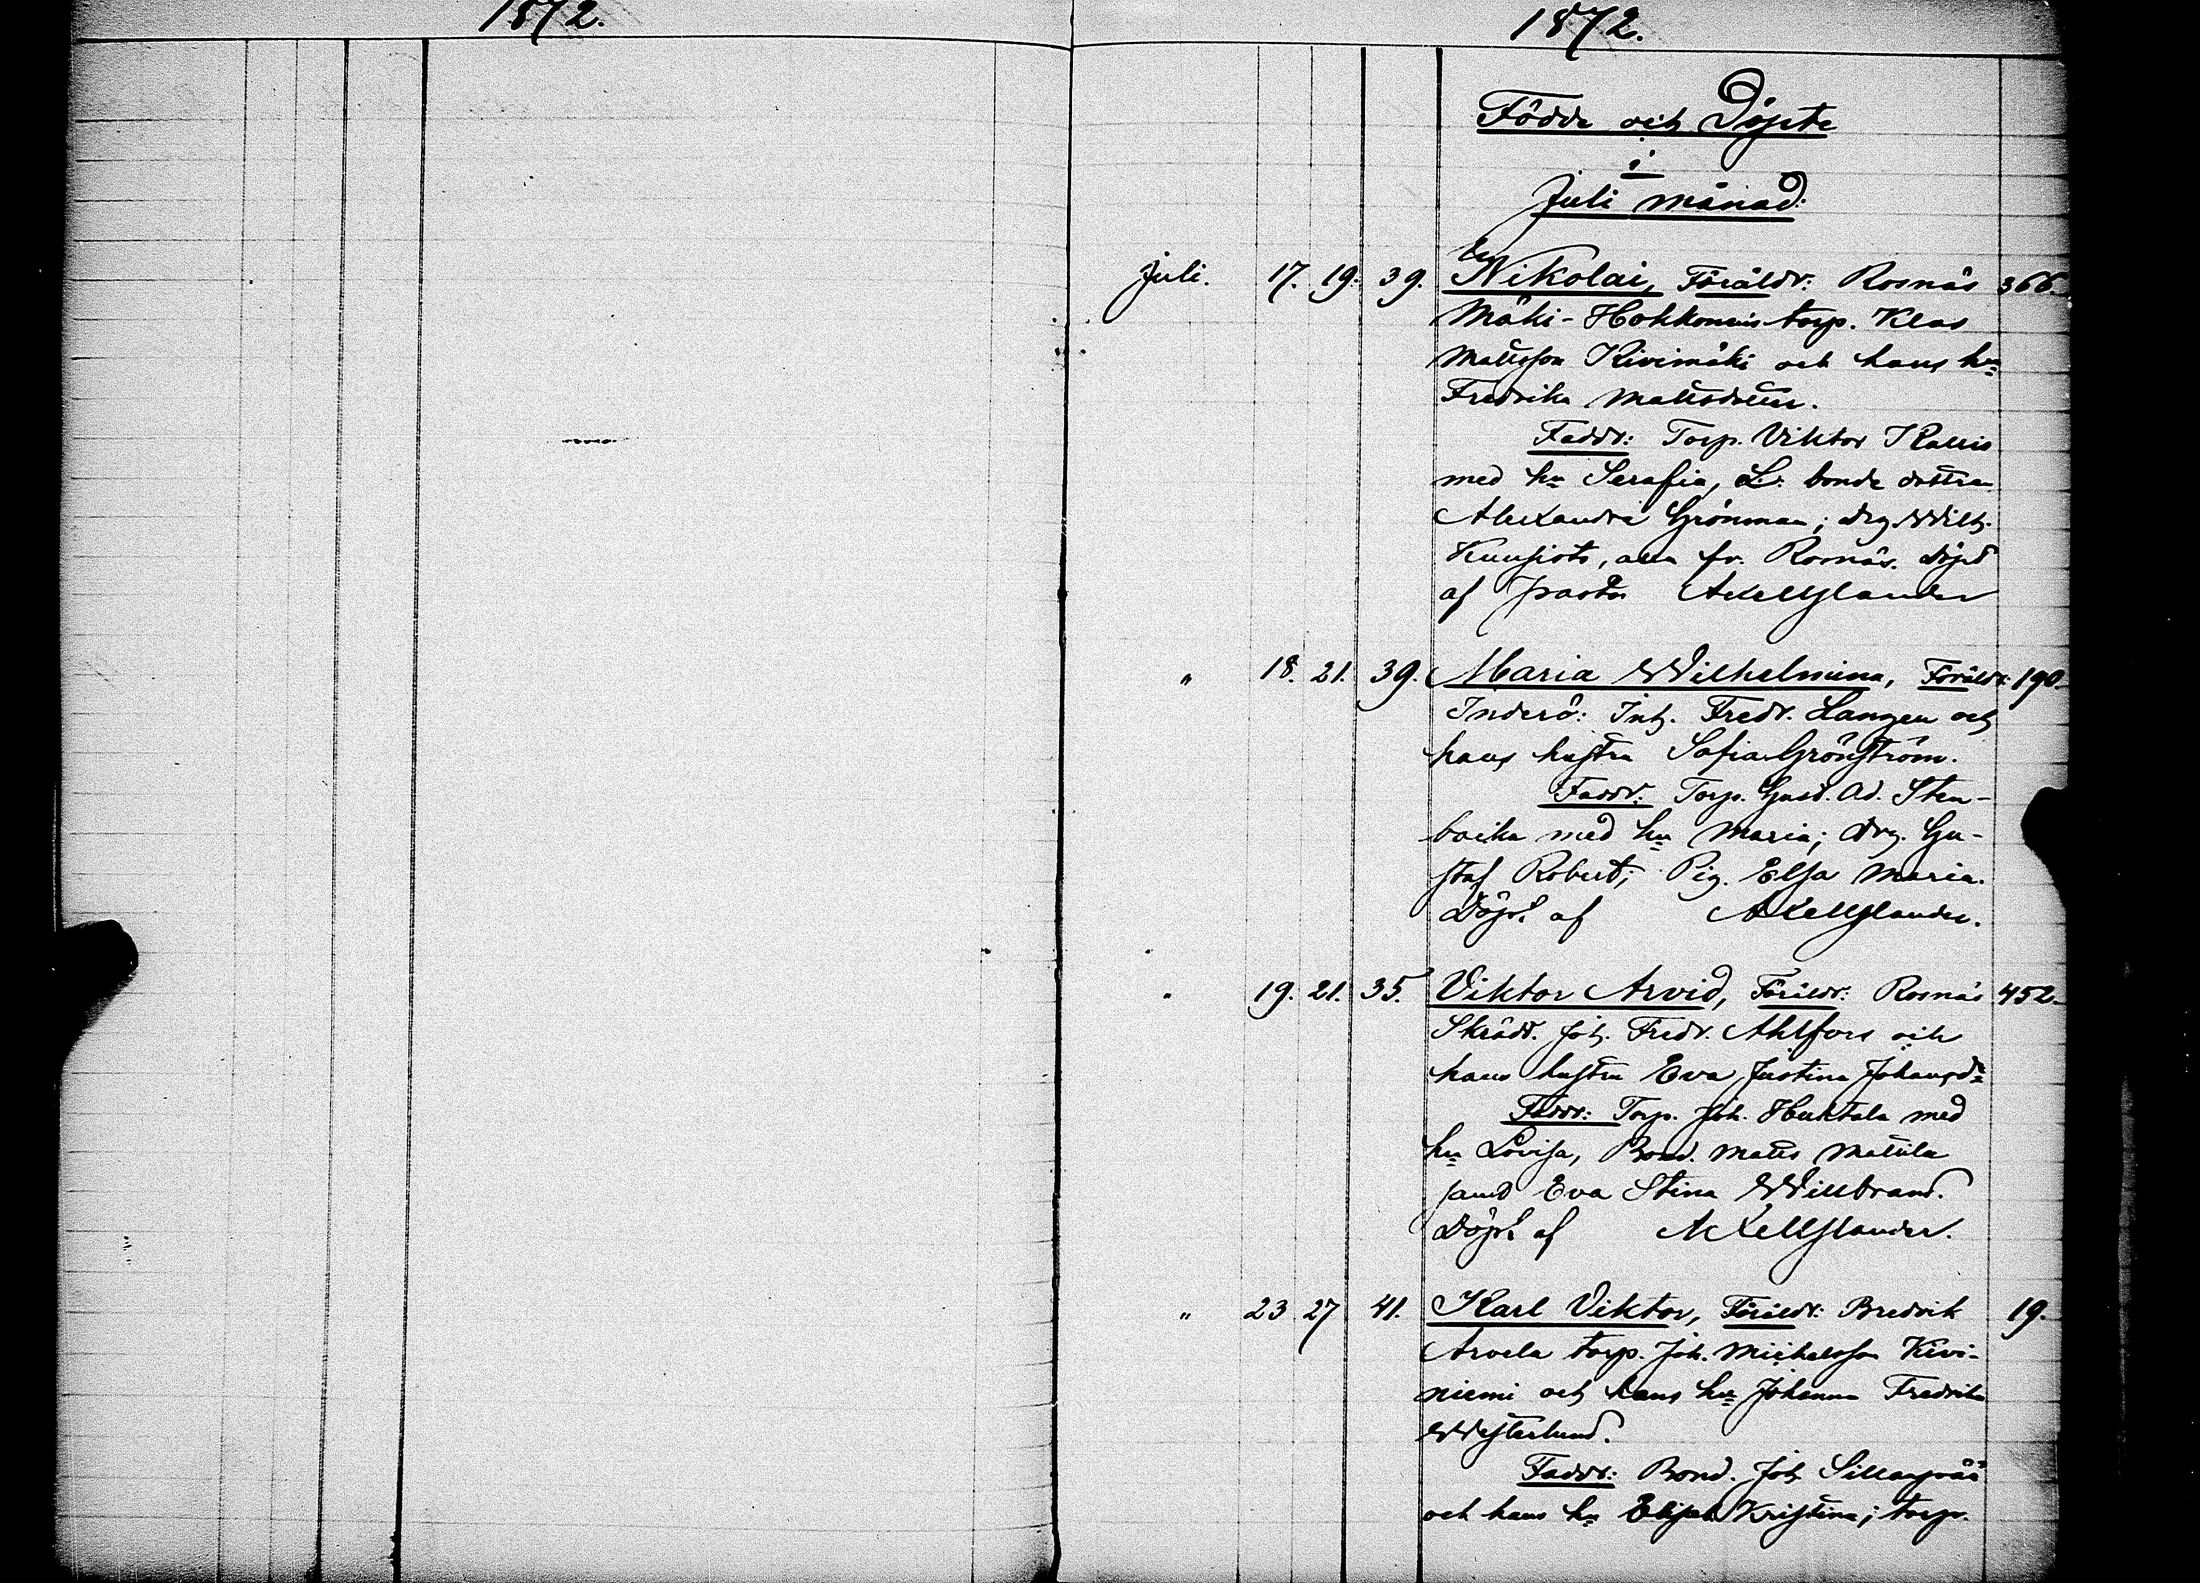 1872.
1872.
Födde och Döpte
i
Juli månad.
Juli. 17. 19. 39. Nikolai, Föräldr: Rosnäs 366.
Mäki-Hokkoneus torp. Klas
Mattsson Kivimäki och hans hu
Fredrika Mattsdotter.
Faddr: Torp. Viktor Kallis
med hu Serafia, L. bonde dottren
Alexandra Grönman; drg. Wilh.
Kuusisto, alla fr. Rosnäs. Döpt
af pastor Axell
" 18. 21. 39. Maria Wilhelmina, Föräldr: 190.
Inderö: Inh. Fredr. Langen och
hans hustru Sofia Grönström.
Faddr: Torp. Gust. Ad. Sten-
backa med hu Maria; Drg. Gu-
staf Robert; Pig. Elsa Maria.
Döpt af
" 19. 21. 35. Viktor Arvid, Föräldr: Rosnäs 452.
Skrädd. Joh. Fredr. Ahlfors och
hans hustru Eva Justina Johansdr
Faddr: Torp. Joh. Huktala med
hu Lovisa, Bond. Matts Mattila
samt Eva Stina Willbrand.
Döpt af
" 23 27 41. Karl Viktor, Föräldr: Bredvik 19.
Arvela torp. Joh. Michelsson Kivi-
niemi och hans hu Johanna Fredrika
Westerlund.
Faddr: Bond. Joh
och hans hu Elisab. Kristina; torp.